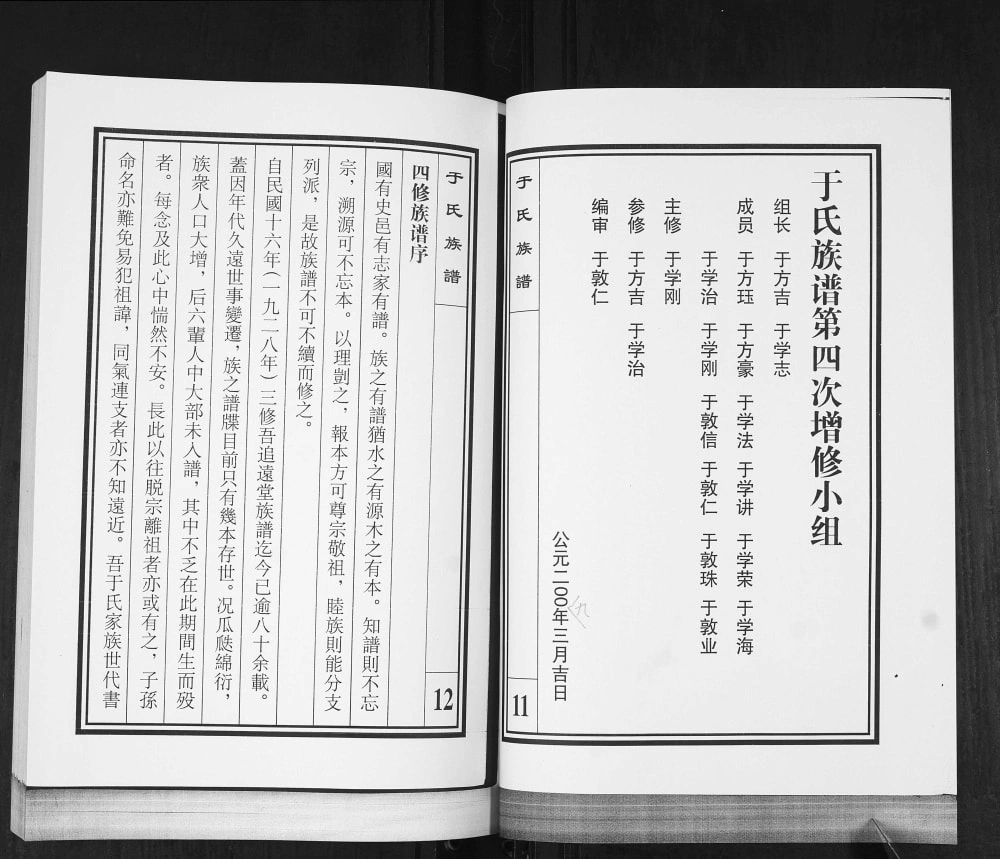 于氏族谱第四次增修小组
组长 于方吉 于学志
成员 于方珏 于方豪 于学法 于学讲 于学荣 于学海
于学治 于学刚 于敦信 于敦仁 于敦珠 于敦业
主修 于学刚
参修 于方吉 于学治
编审 于敦仁
公元二〇〇年三月吉日
九
于氏族譜
11
于氏族譜
12
四修族谱序
國有史邑有志家有譜。族之有譜猶水之有源木之有本。知譜則不忘
宗，溯源可不忘本。以理剴之，報本方可尊宗敬祖，睦族則能分支
列派，是故族譜不可不續而修之。
自民國十六年(一九二八年)三修吾追遠堂族譜迄今已逾八十余載。
蓋因年代久遠世事變遷，族之譜牒目前只有幾本存世。况瓜瓞綿衍，
族衆人口大增，后六輩人中大部未入譜，其中不乏在此期間生而殁
者。每念及此心中惴然不安。長此以往脱宗離祖者亦或有之，子孫
命名亦難免易犯祖諱，同氣連支者亦不知遠近。吾于氏家族世代書